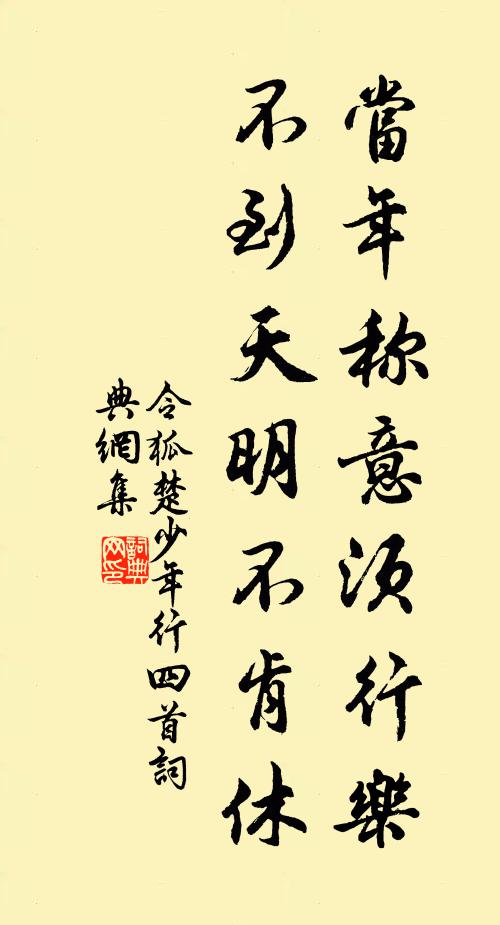 當年称意須行樂
不到天明不肯休
令狐楚少年行四首詞
典網集
詞典
网印